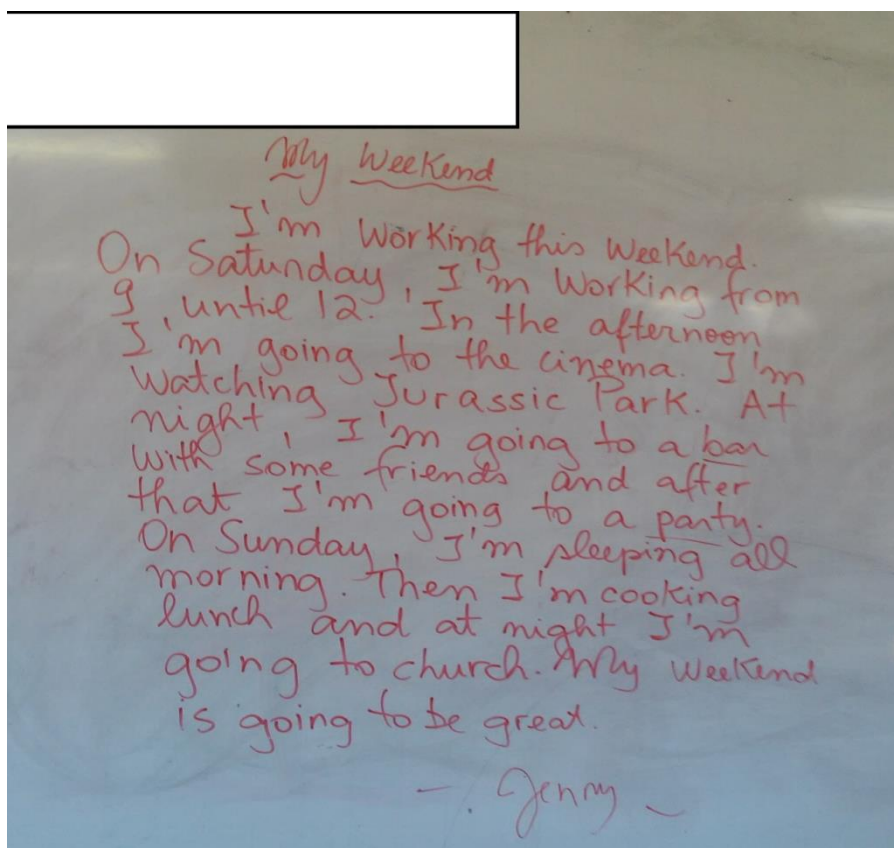 My Weekend
I'm Working this Weekend.
On Satunday, I'm Working from
9 until 12. In the afternoon
I'm going to the cinema. I'm
Watching Jurassic Park. At
night, I'm going to a bar
With some friends and after
that I'm going to a party.
On Sunday, I'm sleeping all
morning. Then I'm cooking
lunch and at night I'm
going to church. My Weekend
is going to be great.
- Jenny -